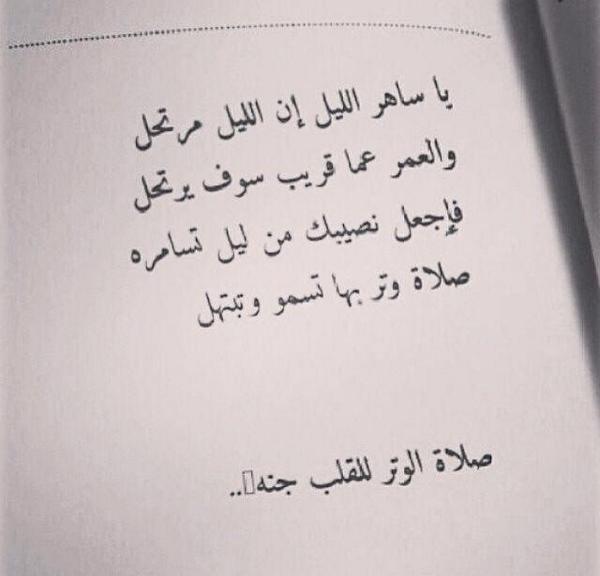 يا ساهر الليل إن الليل مرتحل
والعمر عما قريب سوف يرتحل
فإجعل نصيبك من ليل تسامره
صلاة وتر بها تسمو وتبتهل
صلاة الوتر للقلب جنه..